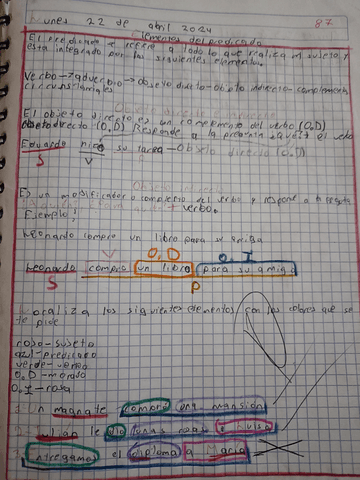 Lunes 22 de abril 2024 87
Elementos del predicado
El predicado se refiere a todo lo que realiza el sujeto y
esta integrado por los siguientes elementos.
Verbo→adverbio→objeto directo→objeto indirecto→complementos
circunstanciales
El objeto directo es un complemento del verbo (O.D)
directo (O.D) Responde a la pregunta ¿qué? el verbo
Eduardo hizo su tarea—Objeto directo (O.D)
S V
Es un modificador o complemento del verbo y responde a la
verbo.
Ejemplo:
Leonardo compro un libro para su amiga
V O.D O.I
Leonardo compro un libro para su amiga
S P
Localiza los siguientes elementos con los colores que se
te pide
rojo-sujeto
azul-predicado
verde-verbo
O.D-morado
O.I-rosa
Un magnate compro una mansion
Julian le dio unas rosas a Luisa
Entregamos el diploma a Maria